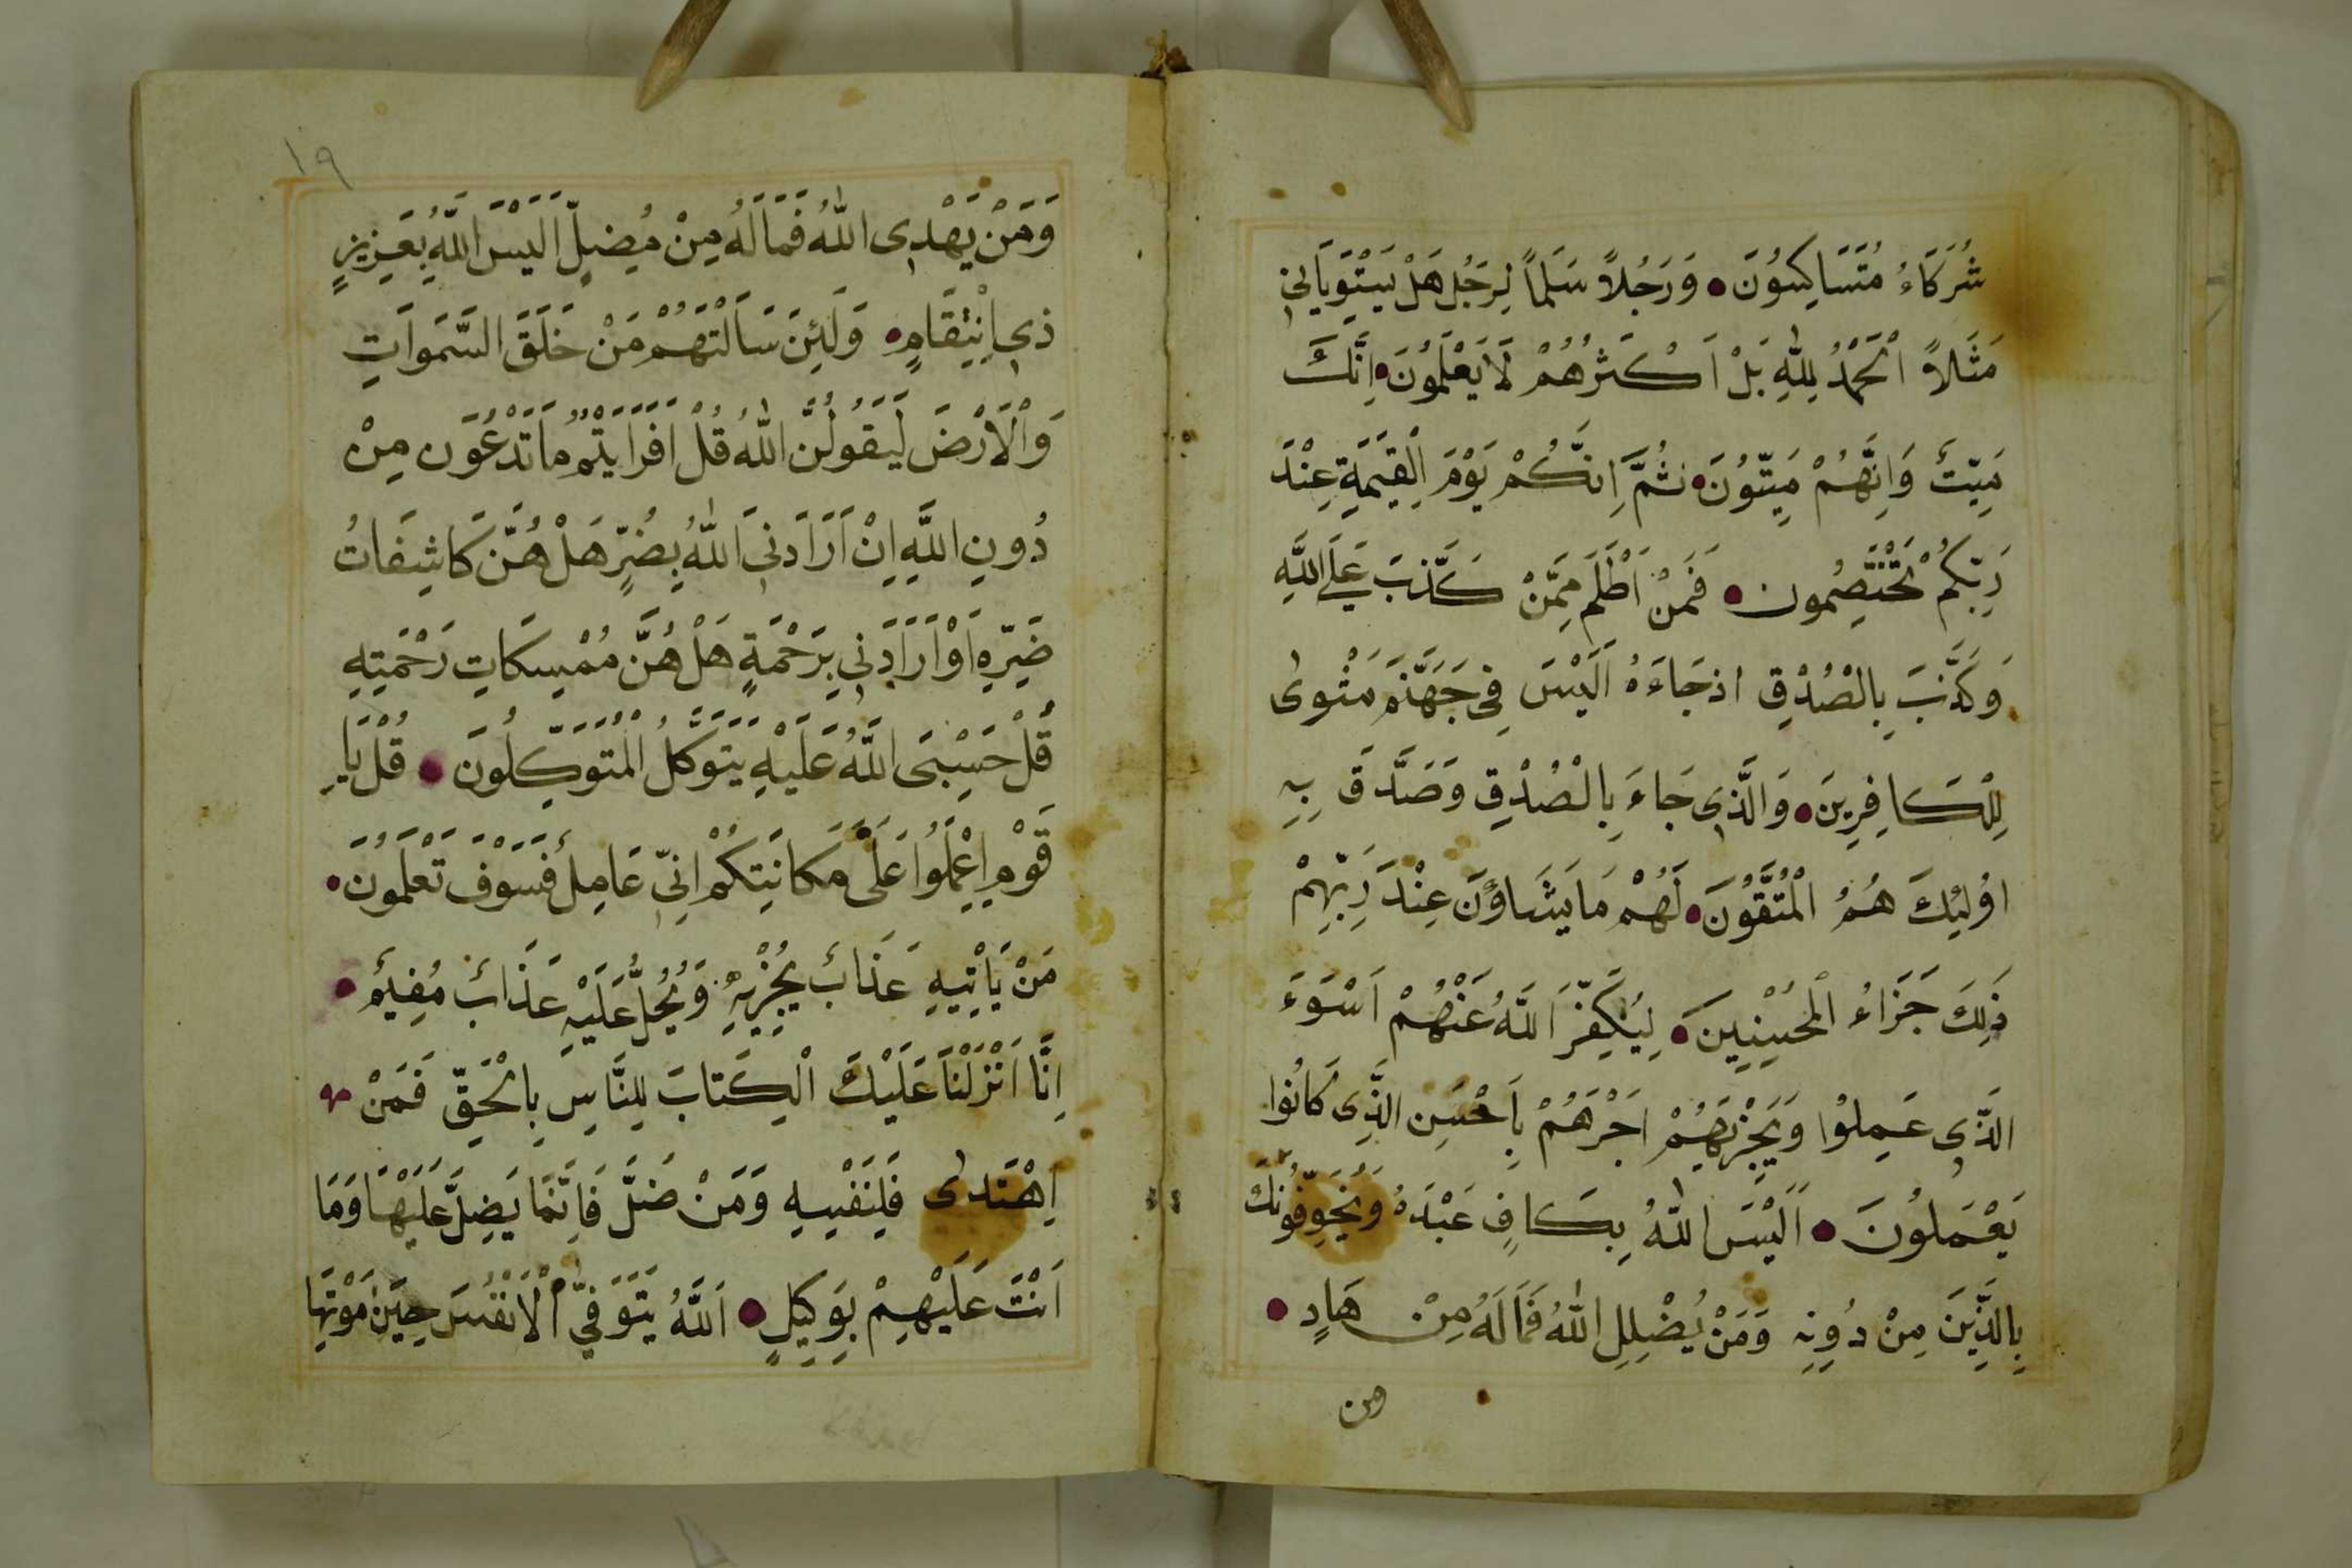 شُرَكَاءُ مُتَشَاكِسُونَ وَرَجُلاً سَلَماً لِرَجُلٍ هَلْ يَسْتَوِيَانِ
مَثَلاً اَلْحَمْدُ لِلّٰهِ بَلْ اَكْثَرُهُمْ لَا يَعْلَمُونَ اِنَّكَ
مَيِّتٌ وَاِنَّهُمْ مَيِّتُونَ ثُمَّ اِنَّكُمْ يَوْمَ الْقِيٰمَةِ عِنْدَ
رَبِّكُمْ تَخْتَصِمُونَ فَمَنْ اَظْلَمُ مِمَّنْ كَذَّبَ عَلَى اللّٰهِ
وَكَذَّبَ بِالصُدْقِ اذ جَاءَهُ اَلَيْسَ فِى جَهَنَّمَ مَثْوىٰ
لِلْكَافِرِينَ وَالَّذِى جَاءَ بِالْصُدْقِ وَصَدَّقَ بِهِ
اوُلٰئِكَ هُمُ الْمُتَّقُونَ لَهُمْ مَا يَشَاؤُنَ عِنْدَ رَبِّهِمْ
ذٰلِكَ جَزَاءُ الْمُحْسِنِينَ لِيُكَفِّرَ اللّٰهُ عَنْهُمْ اَسْوَءَ
الَّذِى عَمِلُوا وَيَجْزِيَهُمْ اَجْرَهُمْ بِاَحْسَنِ الَّذِى كَانُوا
يَعْمَلُونَ اَلَيْسَ اللّٰهُ بِكَافٍ عَبْدَهُ وَيُخَوِّفُونَكَ
بِالَّذِينَ مِنْ دُونِهِ وَمَنْ يُضْلِلِ اللّٰهُ فَمَالَهُ مِنْ هَادٍ
ومن
١٩
وَمَنْ يَهْدِى اللّٰهُ فَمَالَهُ مِنْ مُضِلٍّ اَلَيْسَ اللّٰهِ بِعَزِيزٍ
ذِى اِنْتِقَامٍ وَلَئِنَ سَاَلْتَهُمْ مَنْ خَلَقَ السَّمٰوَاتِ
وَالْاَرْضَ لَيَقُولُنَّ اللّٰهُ قُلْ اَفَرَايْتُمْ مَا تَدْعُونَ مِنْ
دُونِ اللّٰهِ اِنْ اَرَادَنِىَ اللّٰهُ بِضُرٍّ هَلْ هُنَّ كَاشِفَاتُ
ضَرِّهِ اَوْ اَرَادَنِى بِرَحْمَةٍ هَلْ هُنَّ مُمْسِكَاتِ رَحْمَتِهِ
قُلْ حَسْبِىَ اللّٰهُ عَلَيْهِ يَتَوَكَّلُ الْمُتَوَكِّلُونَ قُلْ يَا
قَوْمِ اِعْمَلُوا عَلَى مَكَانَتِكُمْ اِنِّى عَامِلٌ فَسَوْفَ تَعْلَمُونَ
مَنْ يَاْتِيهِ عَذَابٌ يُخْزِيهِ وَيُحِلُّ عَلَيْهِ عَذَابٌ مُقِيمٌ
اِنَّا اَنْزَلْنَا عَلَيْكَ الْكِتَابَ لِلنَّاسِ بِالْحَقِّ فَمَنْ
اِهْتَدىٰ فَلِنَفْسِهِ وَمَنْ ضَلَّ فَاِنَّمَا يَضِلُّ عَلَيْهَا وَمَا
اَنْتَ عَلَيْهِمْ بِوَكِيلٍ اَللّٰهُ يَتَوَفَّى الْاَنْفُسَ حِينَ مَوْتِهَا